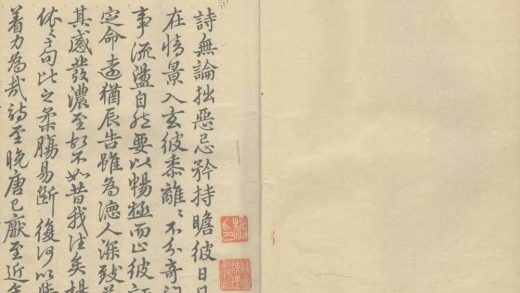 詩無論拙惡忌矜持瞻彼日月
在情景入玄彼黍離〻不分奇
事流盪自然要以暢極而止彼訏
定命遠猶辰告雖為德人深致若
其感發濃至却不如昔我往矣楊
依〻句此之柔腸易斷復何以
着力為哉詩至晚唐已厭至近年